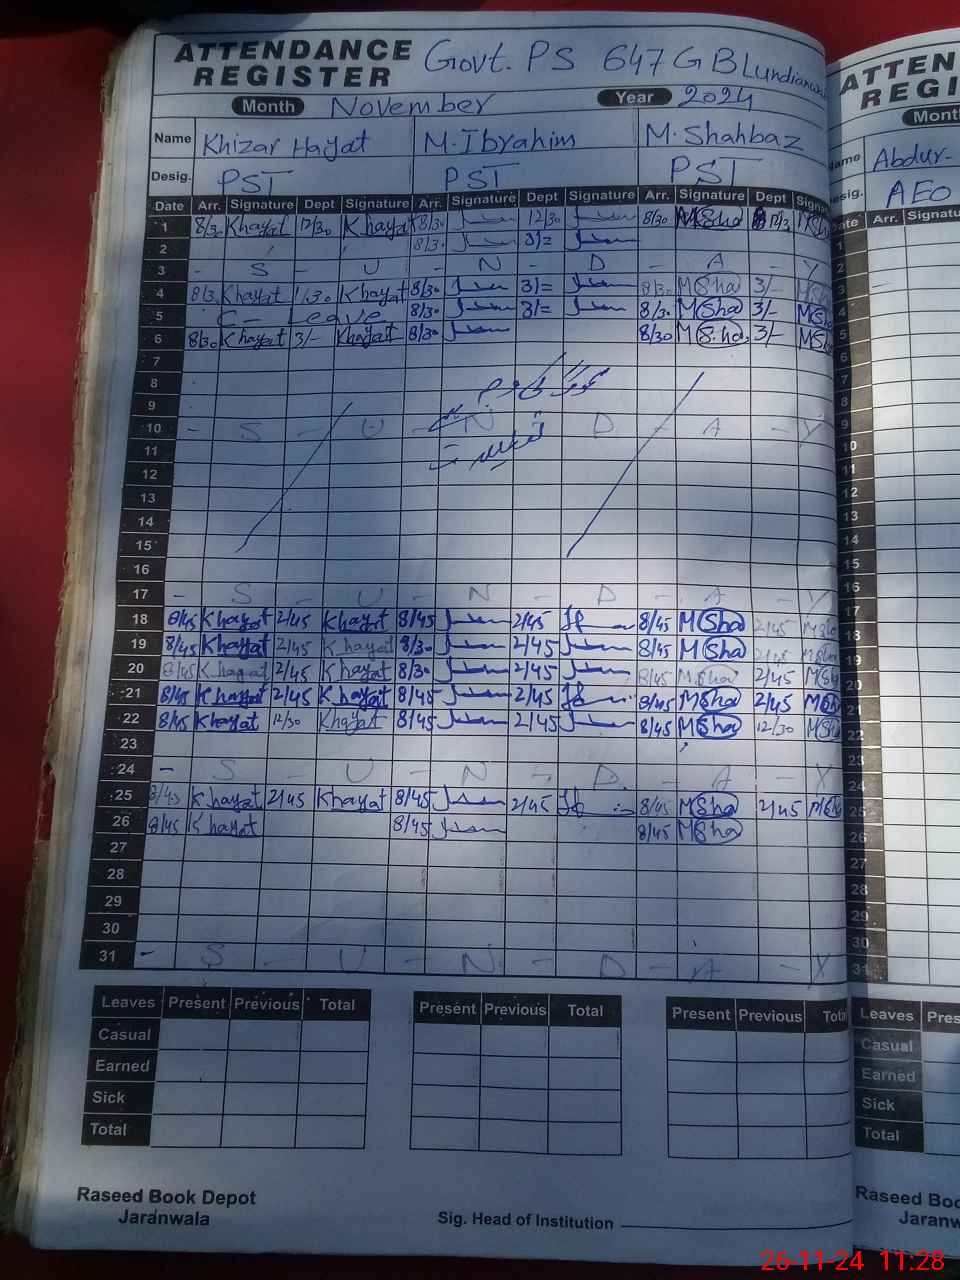 ATTENDANCE REGISTER Govt. PS 647 GB Lundianwala
Month November Year 2024
Name Khizar Hayat M. Ibrahim M. Shahbaz
Desig. PST PST PST
Date Arr. Signature Dept Signature Arr. Signature Dept Signature Arr. Signature Dept Signa
1 8/30 Khayat 12/30 Khayat 8/30 12/30 8/30 MSha
2 8/30 3/=
3 - S - U - N - D - A - Y
4 8/30 Khayat Khayat 8/30 3/= 8/30 MSha 3/- MSha
5 C- Leave 8/30 3/= 8/30 MSha 3/- MSha
6 8/30 Khayat 3/- Khayat 8/30 8/30 MSha 3/- MSha
7
8
9
10 - S - U - N - D - A - Y
11
12
13
14
15
16
17 - S - U - N - D - A - Y
18 8/45 Khayat 2/45 Khayat 8/45 2/45 8/45 MSha 2/45 MSha
19 8/45 Khayat 2/45 Khayat 8/30 2/45 8/45 MSha 2/45 MSha
20 8/45 Khayat 2/45 Khayat 8/30 2/45 8/45 MSha 2/45 MSha
21 8/45 Khayat 2/45 Khayat 8/45 2/45 8/45 MSha 2/45 MSha
22 8/45 Khayat 12/30 Khayat 8/45 2/45 8/45 MSha 12/30 MSha
23
24 - S - U - N - D - A - Y
25 8/45 Khayat 2/45 Khayat 8/45 2/45 8/45 MSha 2/45 MSha
26 8/45 Khayat 8/45 8/45 MSha
27
28
29
30
31 - S - U - N - D - A - Y
Leaves Present Previous Total Present Previous Total Present Previous Total
Casual
Earned
Sick
Total
Raseed Book Depot
Jaranwala
Sig. Head of Institution
ATTEN
REGI
Month
Name Abdur-
Desig. AEO
Date Arr. Signatu
1
2
3
4
5
6
7
8
9
10
11
12
13
14
15
16
17
18
19
20
21
22
23
24
25
26
27
28
29
30
31
Leaves Pres
Casual
Earned
Sick
Total
Raseed Boo
Jaranw
26-11-24 11:28